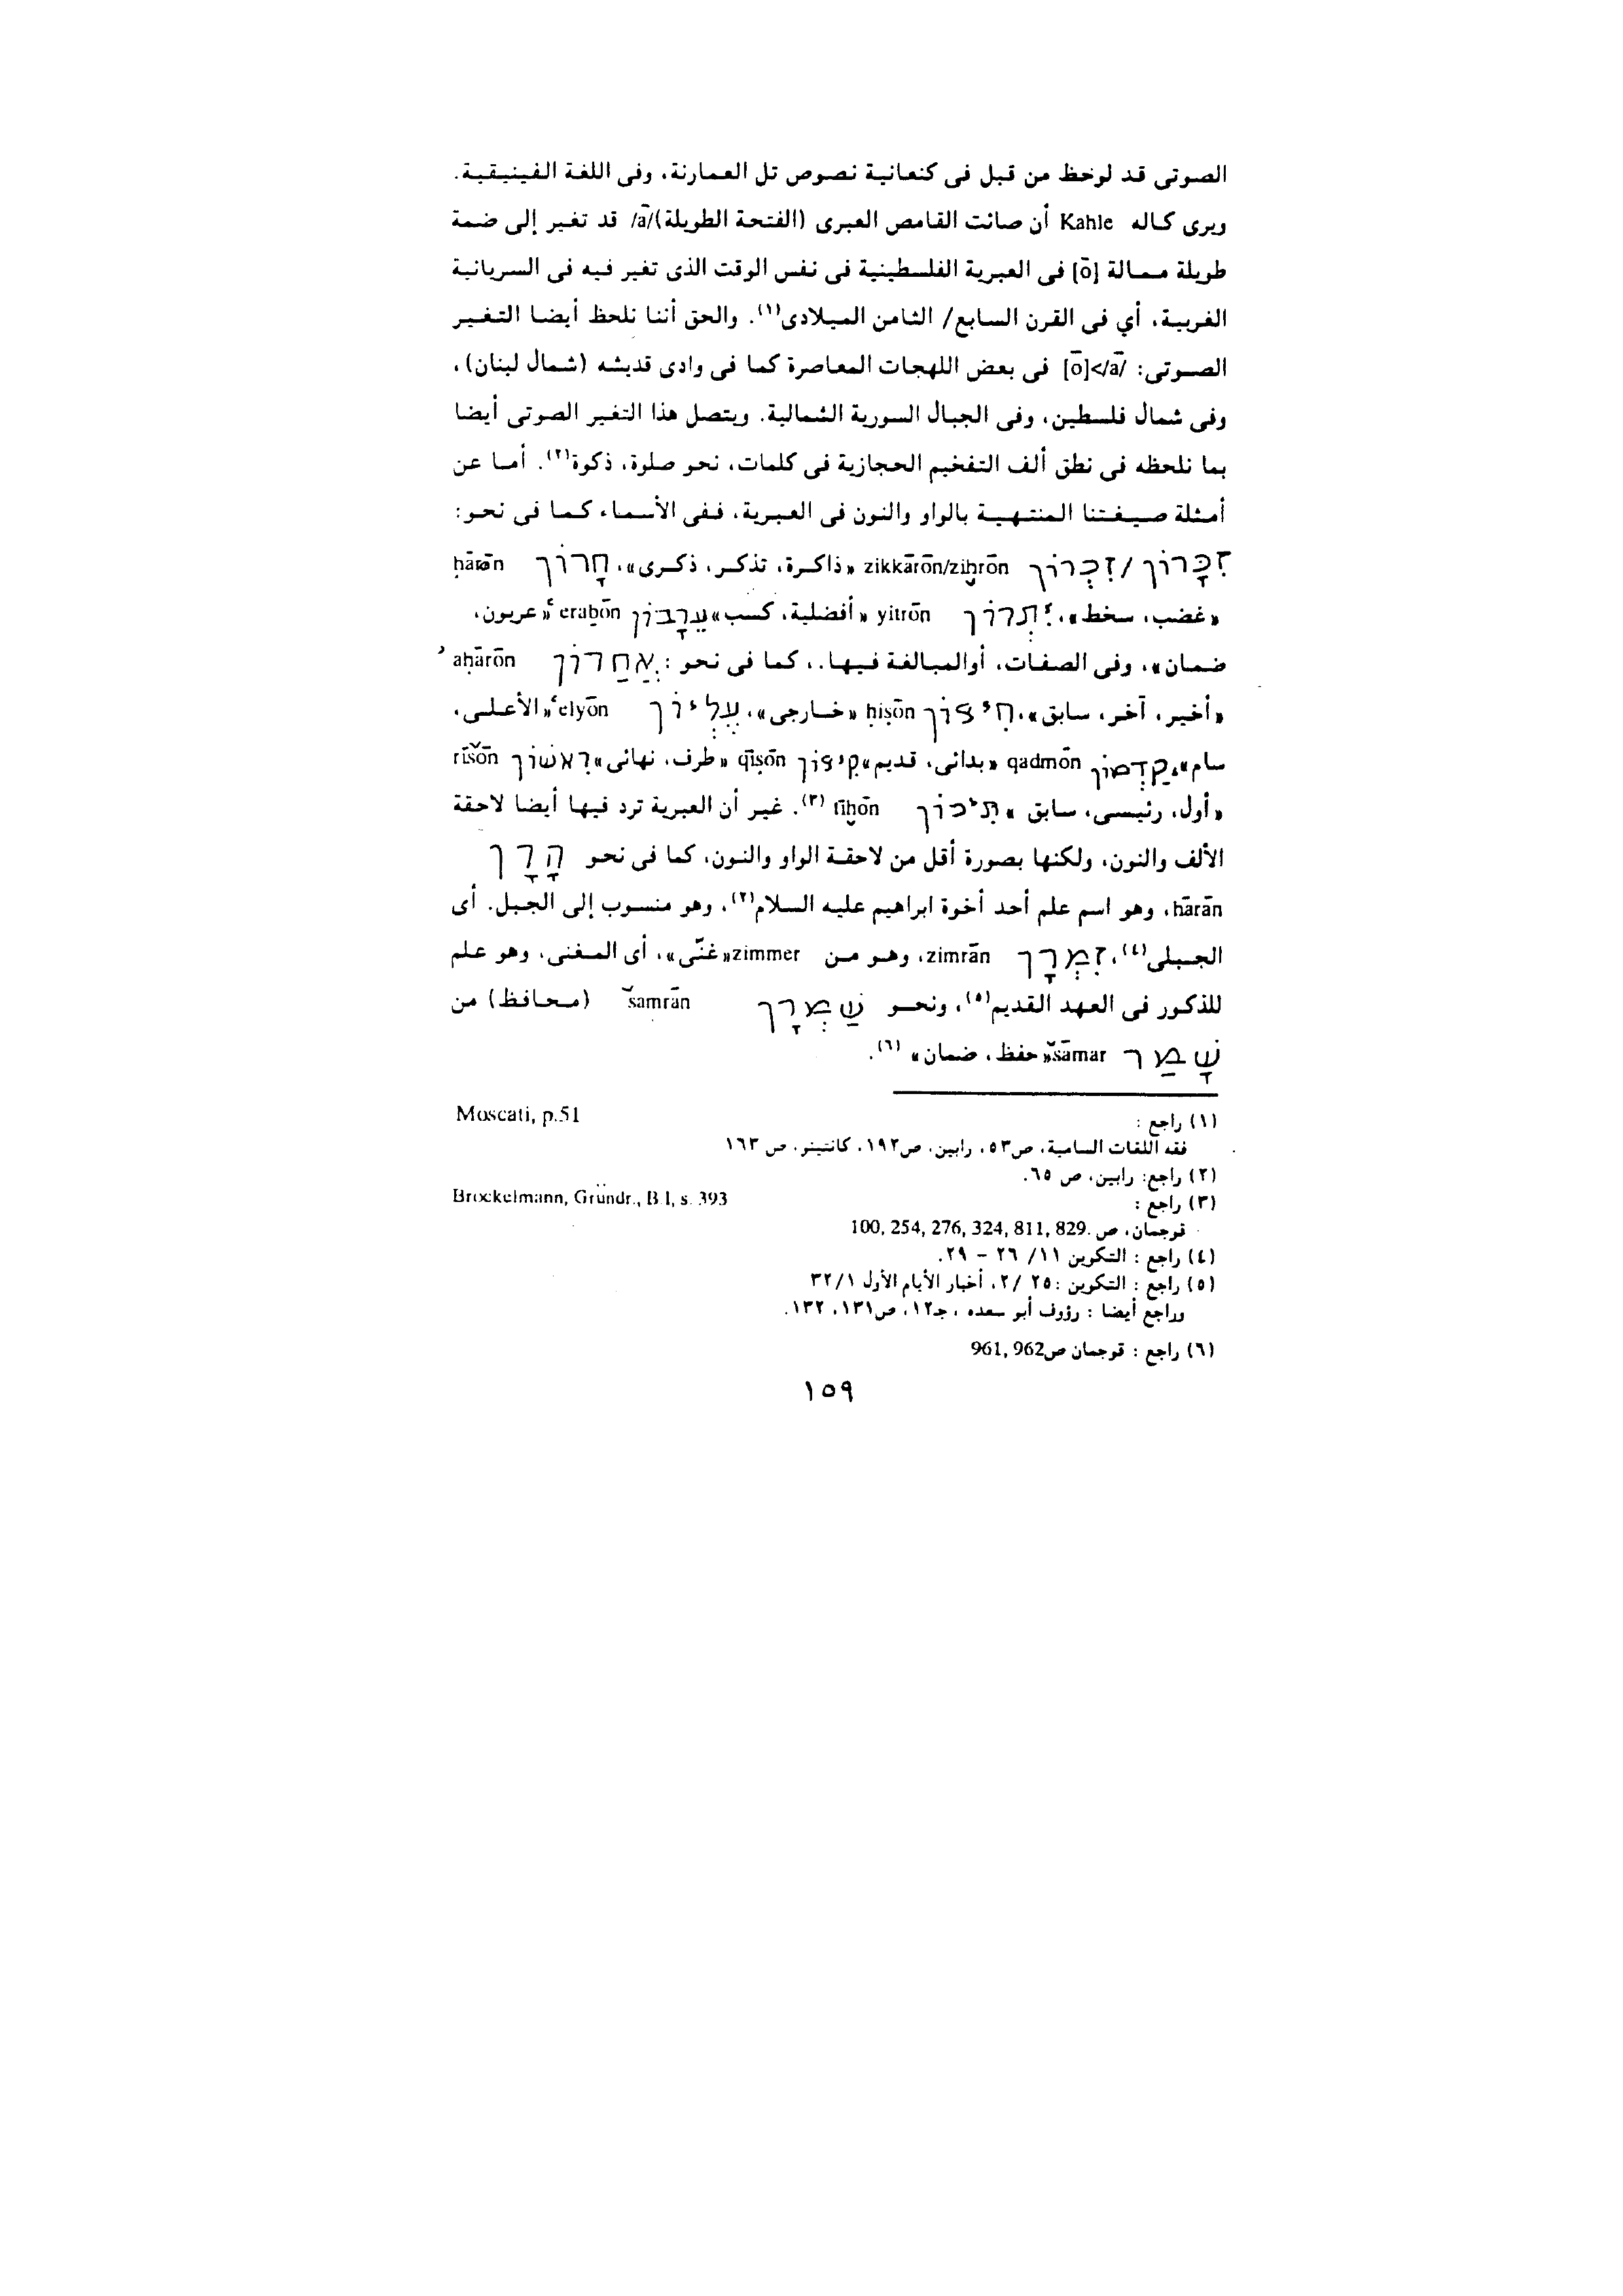 الصوتى قد لوحظ من قبل فى كنعانية نصوص تل العمارنة، وفى اللغة الفينيقية.
ويرى كاله Kahle أن صائت القامص العبرى (الفتحة الطويلة)/ā/ قد تغير إلى ضمة
طويلة ممالة [ō] فى العبرية الفلسطينية فى نفس الوقت الذى تغير فيه فى السريانية
الغربية، أي فى القرن السابع/ الثامن الميلادى(١). والحق أننا نلحظ أيضا التغير
الصوتى: /ā/>[ō] فى بعض اللهجات المعاصرة كما فى وادى قديشه (شمال لبنان)،
وفى شمال فلسطين، وفى الجبال السورية الشمالية. ويتصل هذا التغير الصوتى أيضا
بما نلحظه فى نطق ألف التفخيم الحجازية فى كلمات، نحو صلوة، ذكوة(٢). أما عن
أمثلة صيغتنا المنتهية بالواو والنون فى العبرية، ففى الأسماء كما فى نحو:
זִכָּרוֹן / זִכְרוֹן zikkārōn/ziḫrōn «ذاكرة، تذكر، ذكرى»، חָרוֹן ḥārōn
«غضب، سخط»، יִתְרוֹן yitrōn «أفضلية، كسب» עֵרָבוֹן ʿerabōn «عربون،
ضمان»، وفى الصفات، أوالمبالغة فيها.، كما فى نحو : אַחֲרוֹן ʾaḥārōn
«أخير، آخر، سابق»، חִיצוֹן ḥiṣōn «خارجى»، עֶלְיוֹן ʿelyōn «الأعلى،
سام»، קַדְמוֹן qadmōn «بدائى، قديم» קִיצוֹן qīṣōn «طرف، نهائى» רִאשׁוֹן rīšōn
«أول، رئيسى، سابق» תִּיכוֹן tīḫōn (٣). غير أن العبرية ترد فيها أيضا لاحقة
الألف والنون، ولكنها بصورة أقل من لاحقة الواو والنون، كما فى نحو הָרָן
hārān، وهو اسم علم أحد أخوة ابراهيم عليه السلام(٢)، وهو منسوب إلى الجبل. أى
الجبلى(٤)، זִמְרָן zimrān، وهو من zimmer «غنّى»، أى المغنى، وهو علم
للذكور فى العهد القديم(٥)، ونحو שַׁמְרָן šamrān (محافظ) من
שָׁמַר šāmar «حفظ، ضمان» (٦).
(١) راجع : Moscati, p.51
فقه اللغات السامية، ص٥٣، رابين، ص١٩٢، كانتينو، ص ١٦٣
(٢) راجع: رابين، ص ٦٥.
(٣) راجع : Brockelmann, Gründr., B I, s. 393
قوجمان، ص .100, 254, 276, 324, 811, 829
(٤) راجع : التكوين ١١/ ٢٦ – ٢٩.
(٥) راجع : التكوين :٢٥ /٢، أخبار الأيام الأول ٣٢/١
وراجع أيضا : رؤوف أبو سعده ، جـ١٢، ص١٣١، ١٣٢.
(٦) راجع : قوجمان ص961, 962
١٥٩